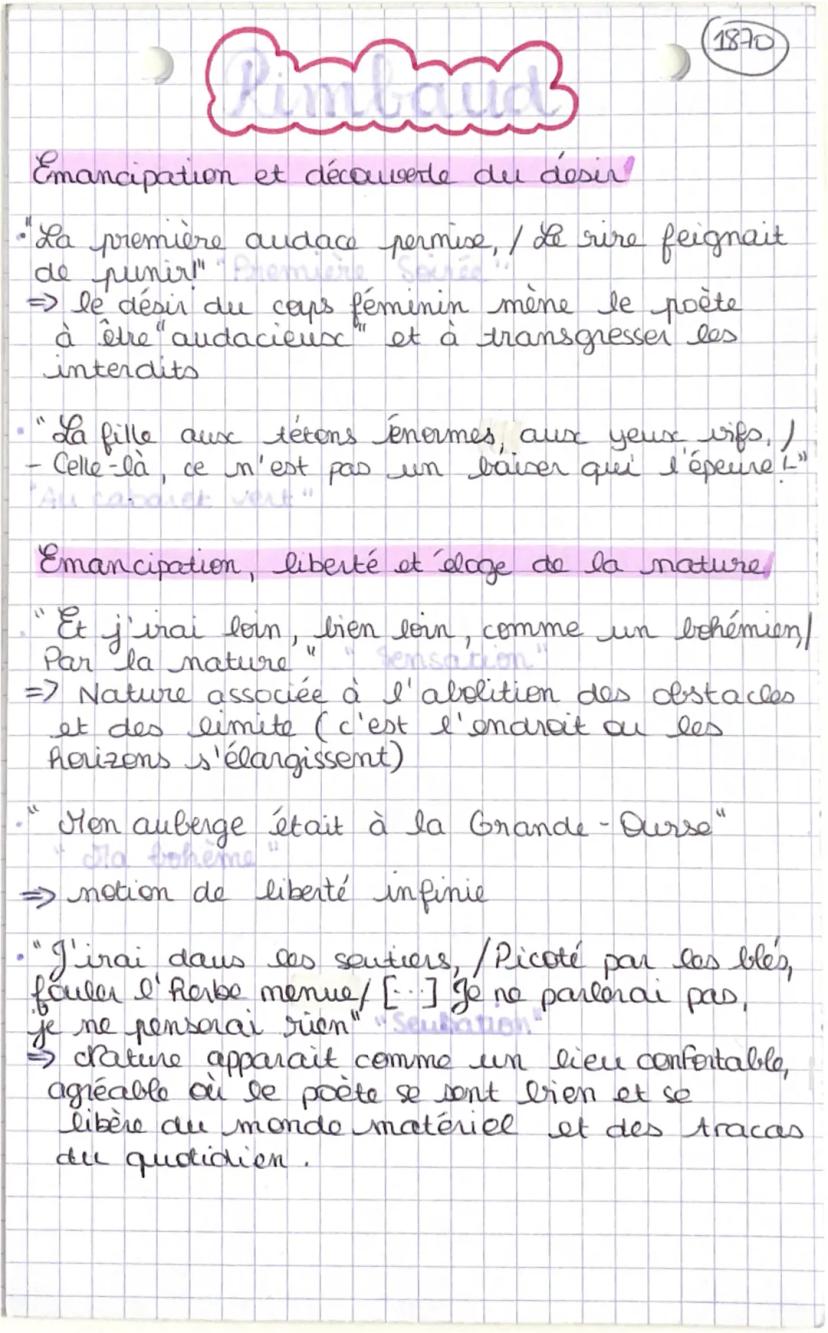 1870
Rimbaud
Emancipation et découverte du désir
• "La première audace permise, / Le rire feignait
de punir!" "Première Soirée"
=> le désir du corps féminin mène le poète
à être "audacieux" et à transgresser les
interdits
• "La fille aux tétons énormes, aux yeux vifs, /
- Celle-là, ce n'est pas un baiser qui l'épeure!-"
"Au cabaret vert"
Emancipation, liberté et éloge de la nature
• "Et j'irai loin, bien loin, comme un bohémien,/
Par la nature" "Sensation"
=> Nature associée à l'abolition des obstacles
et des limite (c'est l'endroit ou les
horizons s'élargissent)
• "Mon auberge était à la Grande-Ourse"
"Ma bohème"
=> notion de liberté infinie
• "J'irai dans les sentiers, /Picoté par les blés,
fouler l'herbe menue/ [...] Je ne parlerai pas,
je ne penserai rien" "Sensation"
=> Nature apparait comme un lieu confortable,
agréable où le poète se sent bien et se
libère du monde matériel et des tracas
du quotidien.